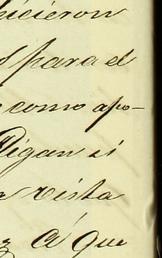 hicieron
para el
como apo-
digan si
vista
á que